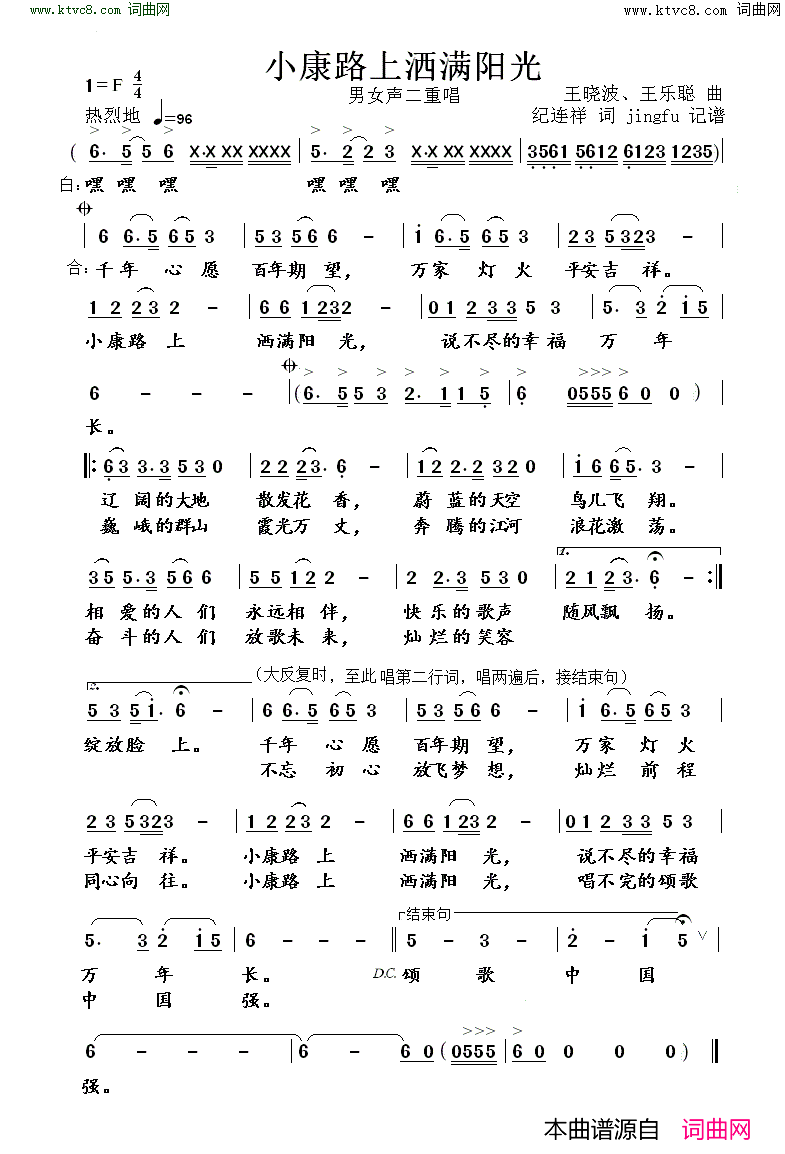 www.ktvc8.com 词曲网 www.ktvc8.com 词曲网
小康路上洒满阳光
1=F 4/4 男女声二重唱 王晓波、王乐聪 曲
热烈地 ♩=96 纪连祥 词 jingfu 记谱
( 6· 5 5 6 X·X XX XXXX | 5· 2 2 3 X·X XX XXXX | 3561 5612 6123 1235) |
白: 嘿 嘿 嘿 嘿 嘿 嘿
| 6 6·5 65 3 | 53 56 6 - | i 6·5 65 3 | 23 5323 - |
合: 千年 心愿 百年期望, 万家 灯火 平安吉祥。
| 12 23 2 - | 66 1232 - | 01 23 35 3 | 5· 3 2 i5 |
小康路上 洒满阳光, 说不尽的幸福 万 年
6 - - - | (6·5 53 2·1 15 | 6 0555 6 0 0 ) |
长。
‖: 63 3·3 53 0 | 22 23· 6 - | 12 2·2 32 0 | i6 65· 3 - |
辽 阔的大地 散发花香, 蔚 蓝的天空 鸟儿飞翔。
巍 峨的群山 霞光万丈, 奔 腾的江河 浪花激荡。
1.
35 5·3 56 6 | 55 12 2 - | 2 2·3 53 0 | 21 23· 6 - :‖
相 爱的人们 永远相伴, 快 乐的歌声 随风飘扬。
奋 斗的人们 放歌未来, 灿 烂的笑容
2. (大反复时，至此 唱第二行词，唱两遍后，接结束句)
53 5i· 6 - | 6 6·5 65 3 | 53 56 6 - | i 6·5 65 3 |
绽放脸上。 千年 心愿 百年期望, 万家 灯火
不忘 初心 放飞梦想, 灿烂 前程
23 5323 - | 12 23 2 - | 66 1232 - | 01 23 35 3 |
平安吉祥。 小康路上 洒满阳光, 说不尽的幸福
同心向往。 小康路上 洒满阳光, 唱不完的颂歌
结束句
5· 3 2 i5 | 6 - - - ‖ 5 - 3 - | 2 - i 5 ∨ |
万 年 长。 D.C. 颂 歌 中 国
中 国 强。
6 - - - | 6 - 6 0 ( 0555 | 6 0 0 0 0 ) ‖
强。
本曲谱源自 词曲网